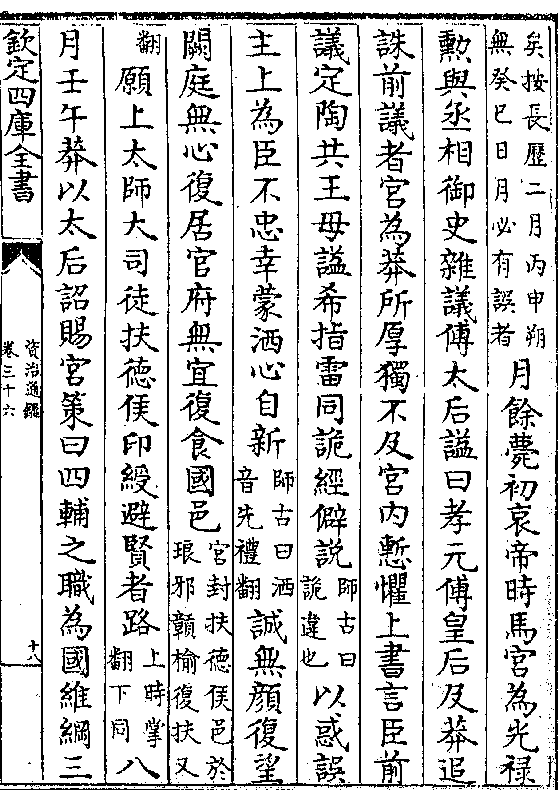 矣按長歷二月丙申朔
無癸巳日月必有誤者
月餘薨初哀帝時馬宮為光祿
勲與丞相御史雜議傅太后諡曰孝元傅皇后及莽追
誅前議者宮為莽所厚獨不及宮内慙懼上書言臣前
議定陶共王母諡希指雷同詭經僻說
師古曰
詭違也
以惑誤
主上為臣不忠幸蒙洒心自新
師古曰洒
音先禮翻
誠無顔復望
闕庭無心復居官府無宜復食國邑
宮封扶德侯邑於
琅邪贑榆復扶又
翻
願上太師大司徒扶德侯印綬避賢者路
上時掌
翻下同
八
月壬午莽以太后詔賜宮策曰四輔之職為國維綱三
欽定四庫全書
資治通鑑
卷三十六
十八